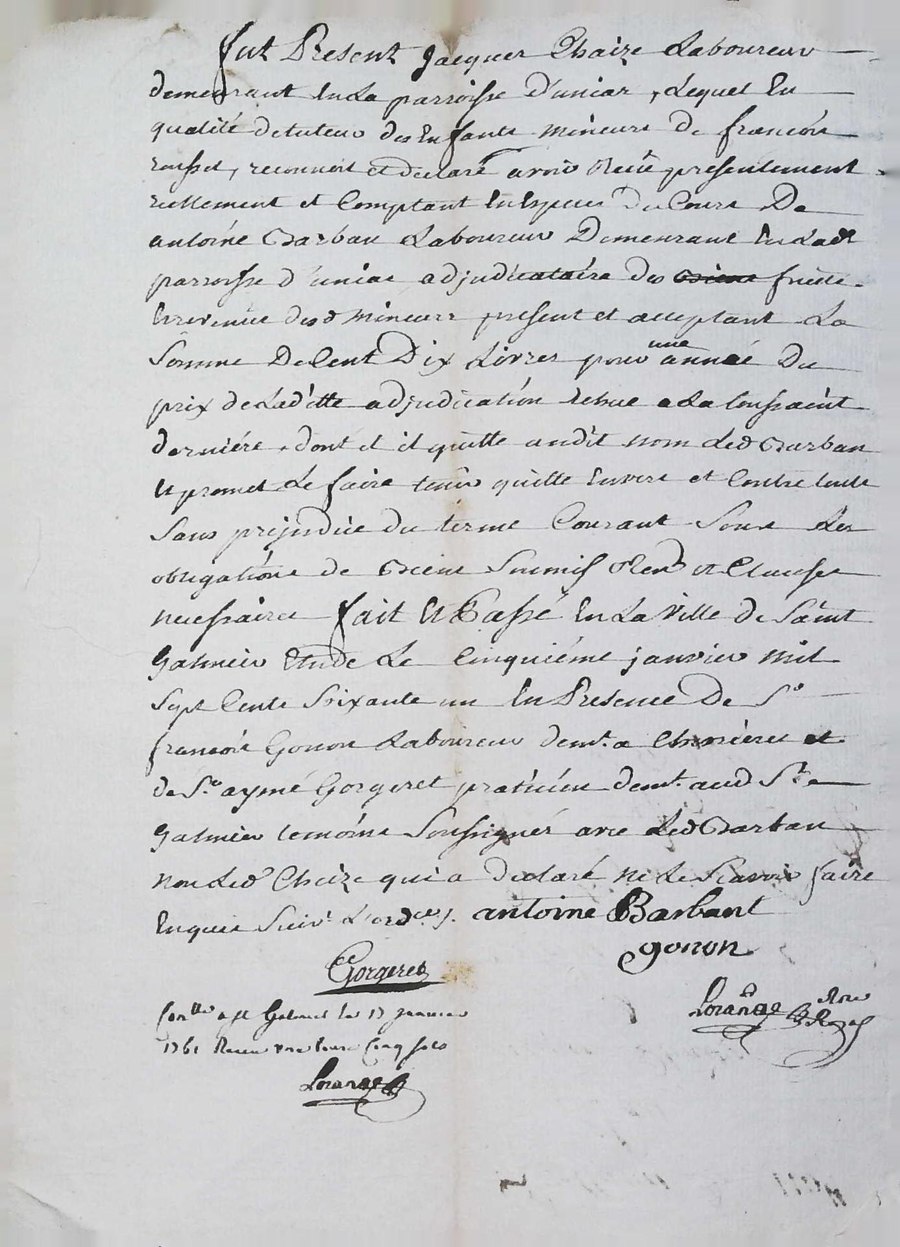 fut Present Jacques Chaize Laboureur
demeurant En La parroisse d'uniac, Lequel En
qualité de tuteur des Enfants mineurs de francois
rousset, reconnoit et declaré avoir Recû presentement
reellement et Comptant En Especes du Cours De
antoine Barban Laboureur Demeurant En Lade
parroisse d'uniac adjudicataire des fruits
Et revenus desd mineurs present et acceptant La
Somme De Cent Dix Livres pour une année Du
prix de Laditte adjudication Echue a La toussaint
derniére, dont et il quitte audit nom Led Barban
Et promet Le faire tenir quitte Envers et Contre touts
Sans préjudice du terme Courant Sous Les
obligations de Biens Soumis Ren et Clauses
necessaires fait Et Passé En La Ville de Saint
Galmier Etude Le Cinquiéme janvier mil
Sept Cents Soixante un En Presence De Sr
francois Gonon Laboureur demt. a et
de Sr. aymé Gorgeret praticien demt. aud St
Galmier temoins Soussignés avec Led Barban
non Led Chaize qui a declaré ne Le Scavoir faire
Enquis Suivt L'ordce. antoine Barbant
gonon
Gorgeret
Conlle a St Galmier le 17 janvier
1761 Receu Cinq sols
Lorange
Lorange